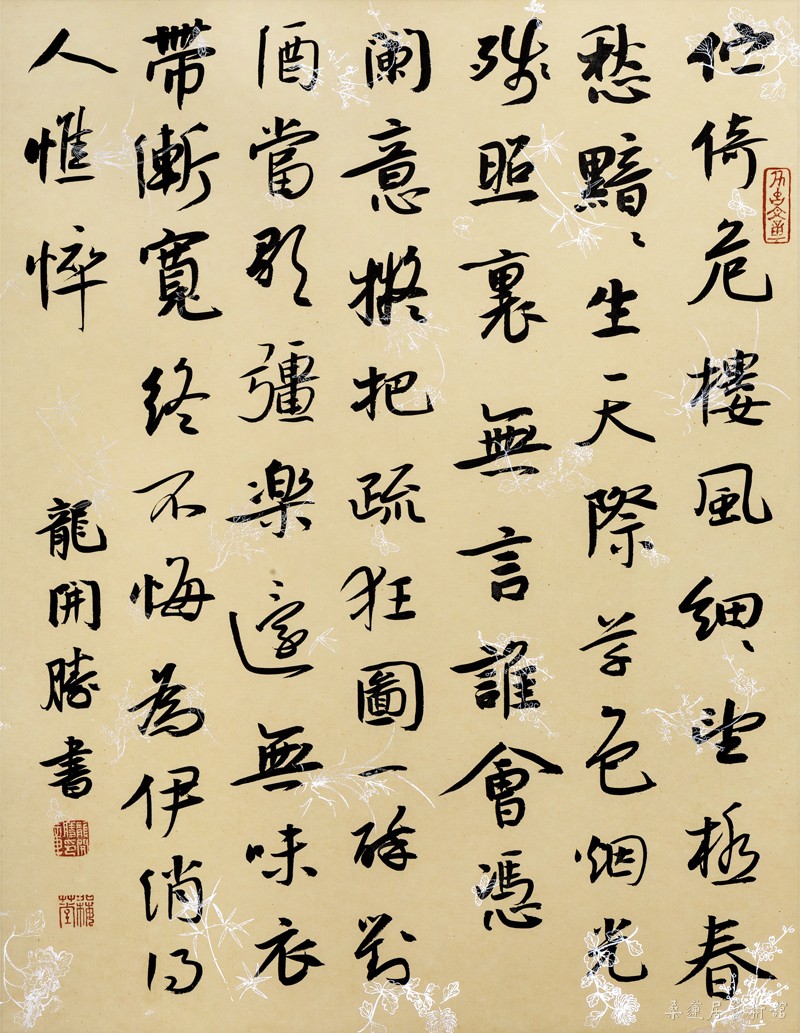 佇倚危樓風細〻望極春
愁黯〻生天際草色烟光
殘照裏無言誰會憑
闌意擬把疏狂圖一醉對
酒當歌彊樂還無味衣
帶漸寬終不悔為伊消得
人憔悴
龍開勝書
桑蓮居藝術館